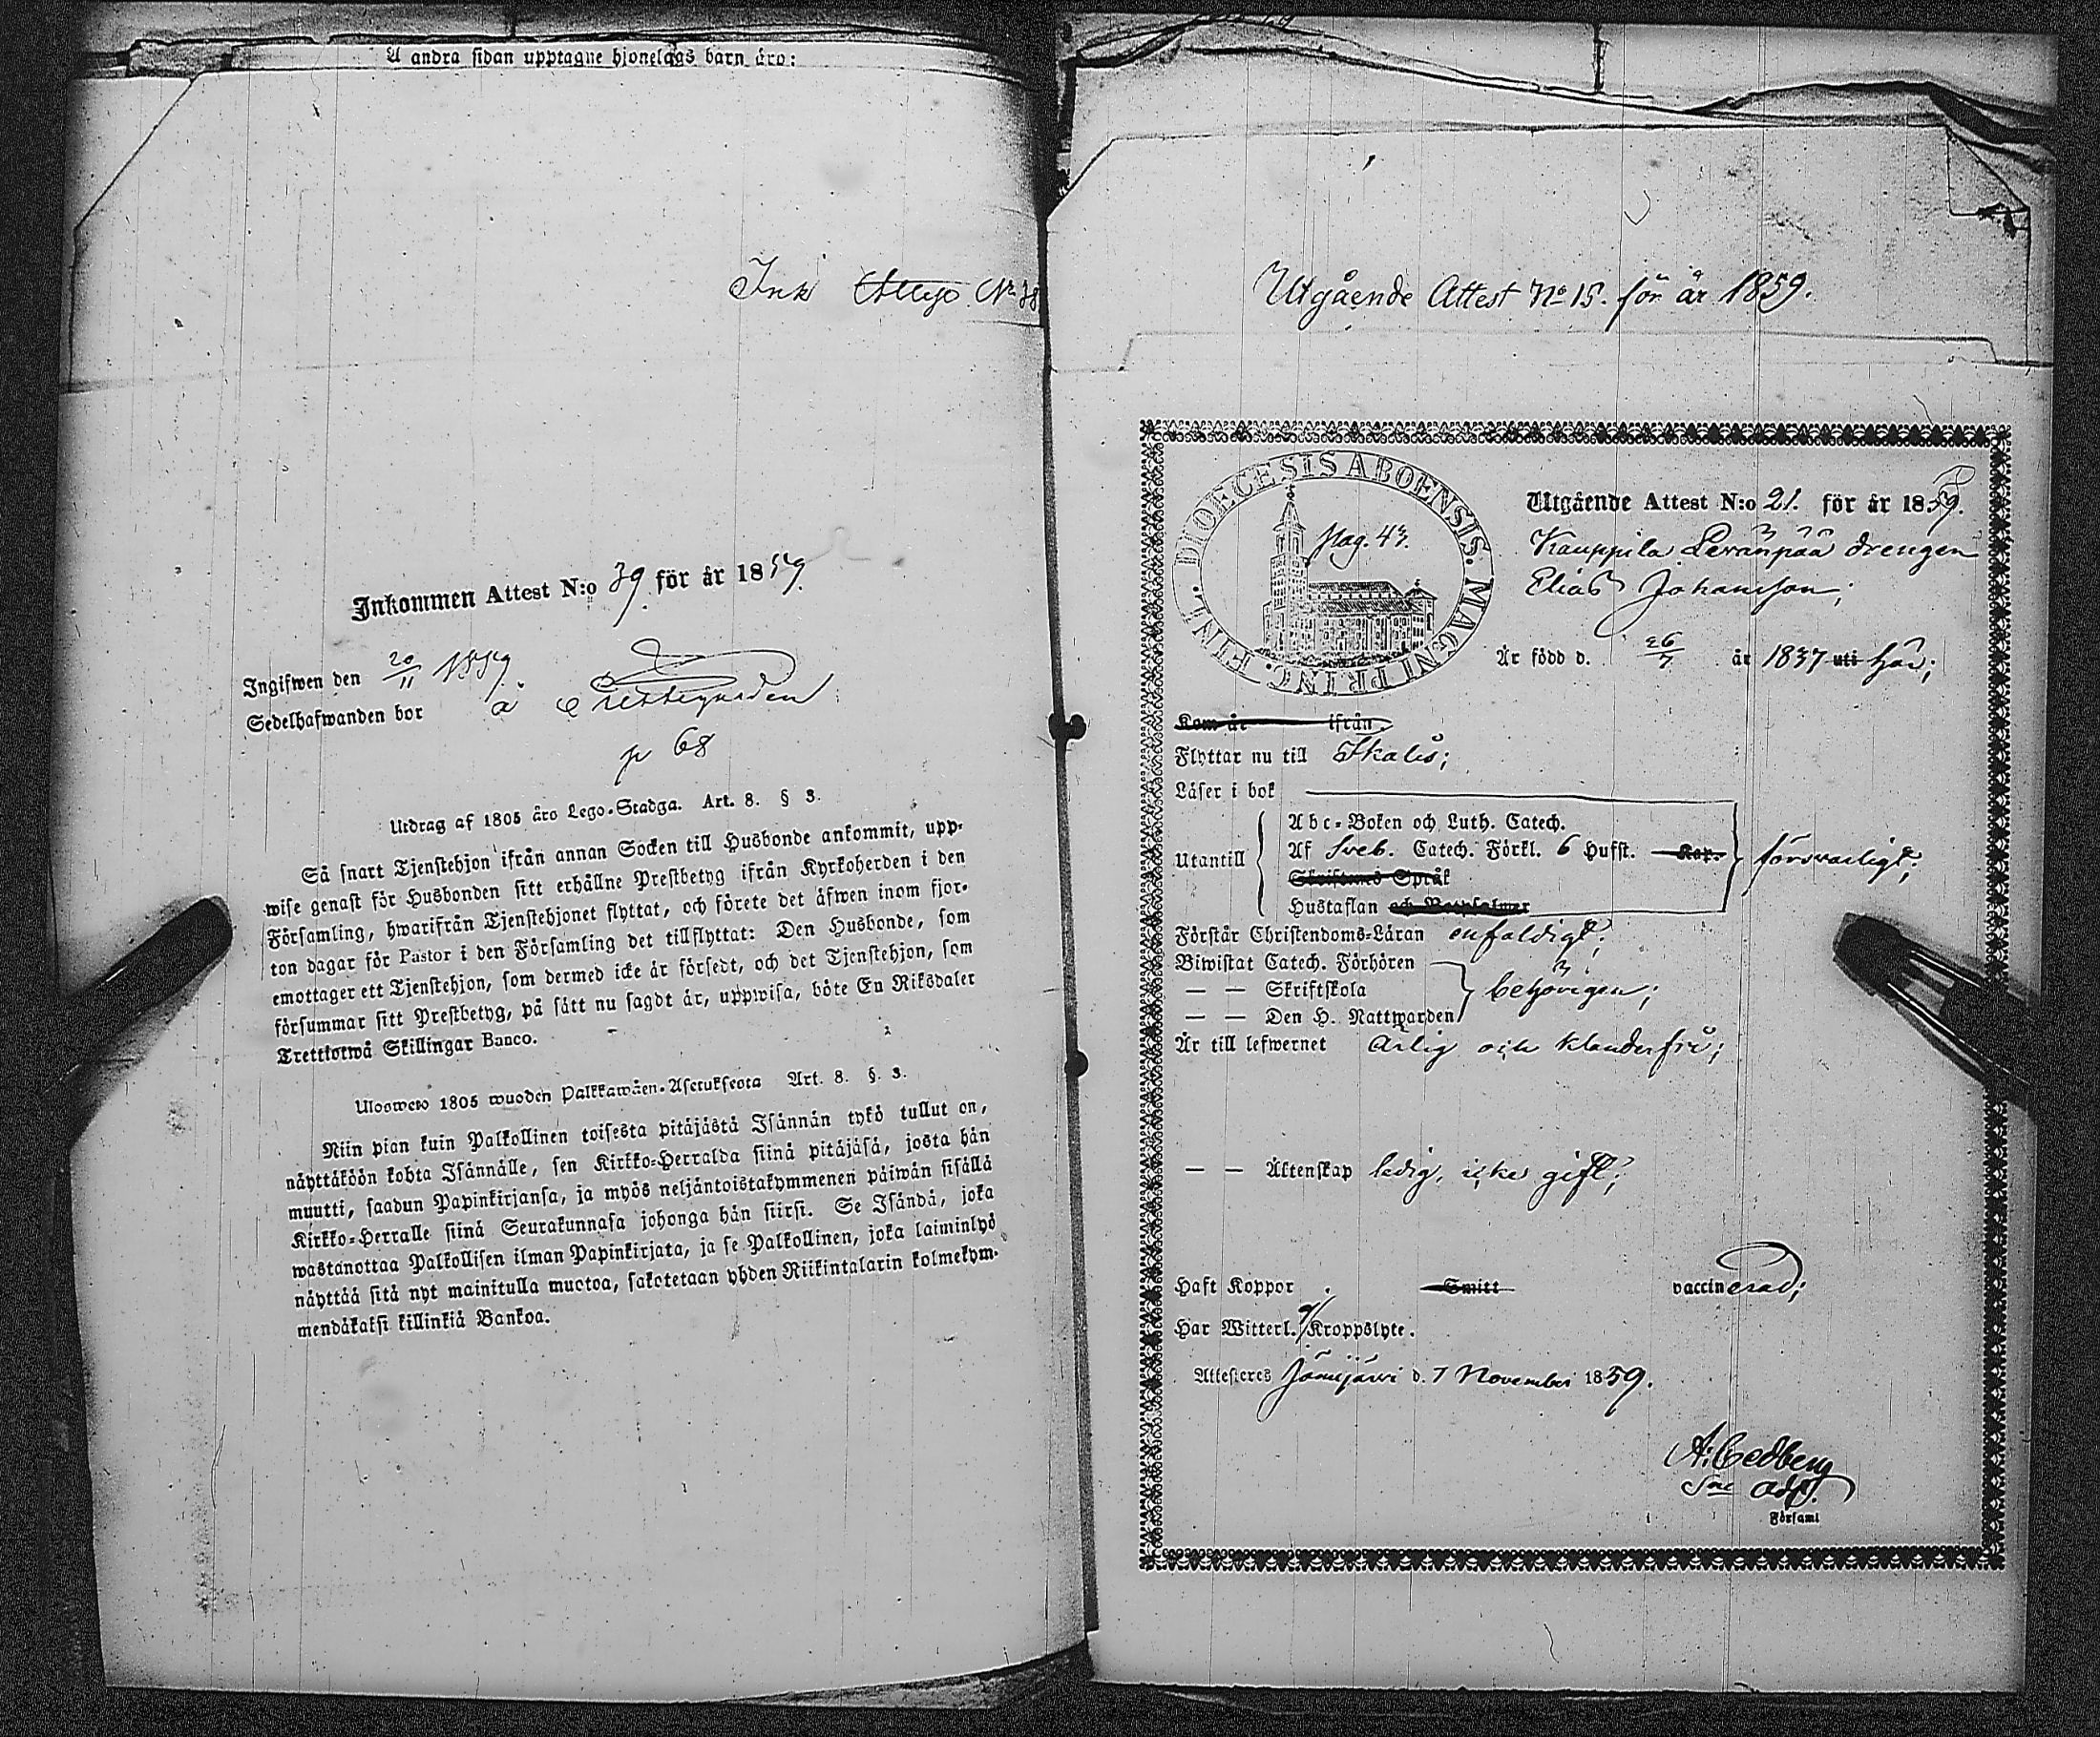 A andra sidan upptagne hjonelags barn äro:
Ink Attest No 38
Inkommen Attest N:o 39 för år 1859.
Ingifwen den 20/11 1859
Sedelhafwanden bor å Prestegården
p 68
Utdrag af 1805 åro Lego-Stadga. Art. 8. § 3.
Så snart Tjenstehjon ifrån annan Socken till Husbonde ankommit, upp-
wise genast för Husbonden sitt erhållne Prestbetyg ifrån Kyrkoherden i den
Församling, hwarifrån Tjenstehjonet flyttat, och förete det äfwen inom fjor-
ton dagar för Pastor i den Församling det tillflyttat: Den Husbonde, som
emottager ett Tjenstehjon, som dermed icke är försedt, och det Tjenstehjon, som
försummar sitt Prestbetyg, på sätt nu sagdt är, uppwisa, böte En Riksdaler
Trettiotwå Skillingar Banco.
Uloswero 1805 wuoden Palkkawäen-Asetuksesta Art. 8. §. 3.
Niin pian kuin Palkollinen toisesta pitäjästä Isännän tykö tullut on,
näyttäköön kohta Isännälle, sen Kirkko-Herralda siinä pitäjäsä, josta hän
muutti, saadun Papinkirjansa, ja myös neljäntoistakymmenen päiwän sisällä
Kirkko-Herralle siinä Seurakunnasa johonga hän siirsi. Se Isändä, joka
wastanottaa Palkollisen ilman Papinkirjata, ja se Palkollinen, joka laiminlyö
näyttää sitä nyt mainitulla muotoa, sakotetaan yhden Riikintalarin kolmekym-
mendäkaksi killinkiä Bankoa.
Utgående Attest No 15. för år 1859.
DIOECESIS ABOENSIS. MAGNI PRINC. FINL.
Pag. 43.
Utgående Attest N:o 21. för år 1859.
Kauppila Leränpää drengen
Elias Johansson;
Är född d. 26/7 år 1837 uti här;
Kom år ifrån
Flyttar nu till Ikalis;
Läser i bok
Abc-Boken och Luth. Catech.
Utantill Af Sveb. Catech. Förkl. 6 Hufst. försvarligt;
Skriftmed Språk
Hustaflan och Botpsalmer
Förstår Christendoms-Läran enfaldigt;
Biwistat Catech. Förhören
— — Skriftskola behörigen;
— — Den H. Nattwarden
Är till lefwernet ärlig och klanderfri;
— — Äktenskap ledig, icke gift;
Haft Koppor Smitt vaccinerad;
Har Witterl. Kroppslyte.
Attesteres Jämijärvi d. 7 November 1859.
A: Cedberg
Sac. Adj.
Församl